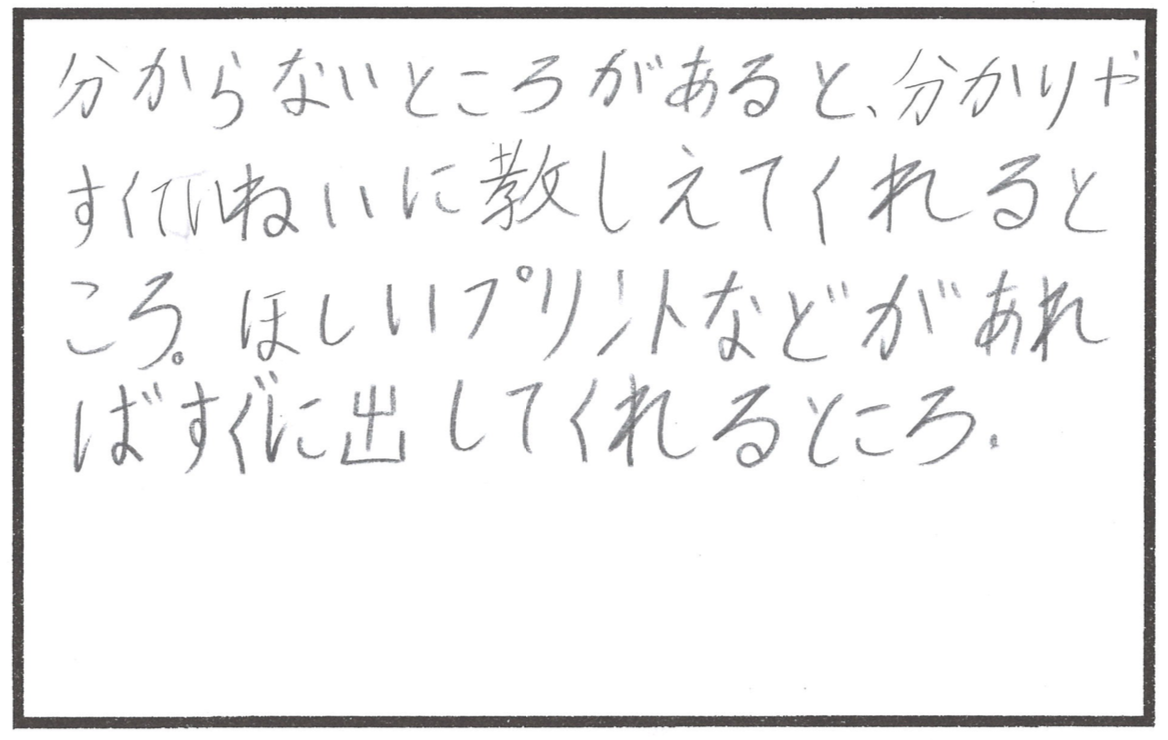 分からないところがあると、分かりや
すくていねいに教しえてくれると
ころ。ほしいプリントなどがあれ
ばすぐに出してくれるところ.